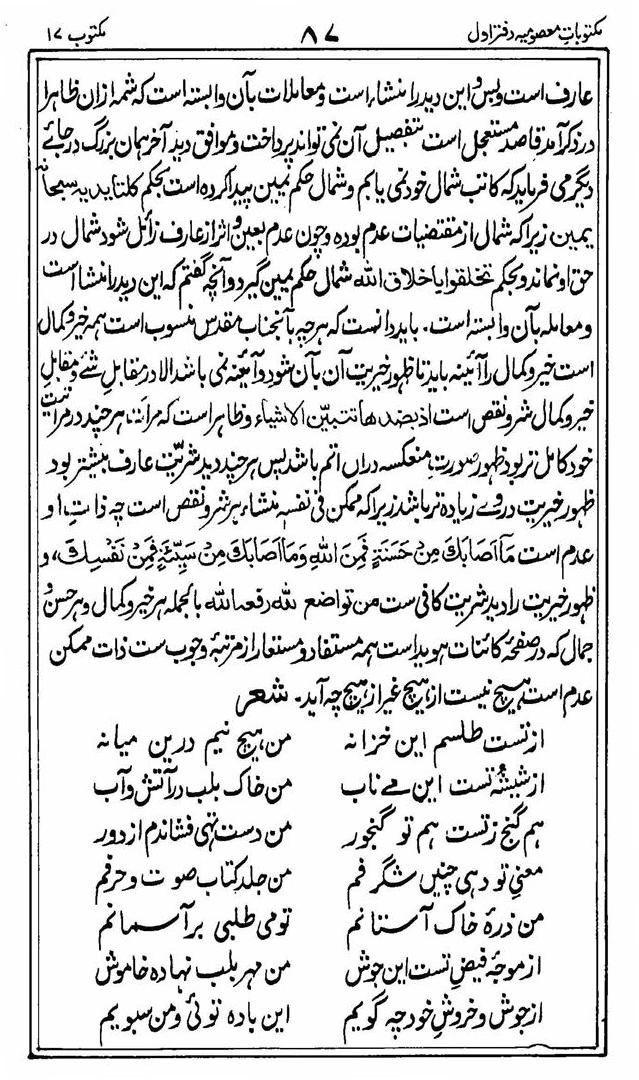 مکتوبات معصومیہ دفتر اول ۸۷ مکتوب ۱۷
عارف است و بس و این دید را منشاء است و معاملات بآن وابستہ است کہ شمہ ازان ظاہرا
در ذکر آمد قاصد مستعجل است بتفصیل آن نمی تواند پرداخت و موافق دید آخر ہمان بزرگ در جائے
دیگر می فرماید کہ کاتب شمال خود نمی یابم و شمال حکم یمین پیدا کردہ است بحکم کلتا یدیہ سبحانہ
یمین زیرا کہ شمال از مقتضیات عدم بودہ و چون عدم بعین و اثر از عارف زائل شود شمال در
حق او نماند و بحکم تخلقوا باخلاق اللہ شمال حکم یمین گیرد و آنچہ گفتم کہ این دید را منشا است
و معاملہ بآن وابستہ است. باید دانست کہ ہر چہ بآنجناب مقدس منسوب است ہمہ خیر و کمال
است خیر و کمال را آئینہ باید تا ظہور خیریت آن بآن شود و آئینہ نمی باشد الا در مقابل شے و مقابل
خیر و کمال شر و نقص است اذ بضدھا تتبیّن الاشیاء و ظاہر است کہ مرات ہر چند در مراتیت
خود کامل تر بود ظہور صورت منعکسہ دران اتم باشد پس ہر چند دید شریّت عارف بیشتر بود
ظہور خیریت در وے زیادہ تر باشد زیرا کہ ممکن فی نفسہ منشاء ہر شر و نقص است چہ ذات او
عدم است مَآ اَصَابَكَ مِنْ حَسَنَةٍ فَمِنَ اللهِ وَمَآ اَصَابَكَ مِنْ سَيِّئَةٍ فَمِنْ نَفْسِكَ، و
ظہور خیریت را دید شریت کافی ست من تواضع للہ رفعہ اللہ بالجملہ ہر خیر و کمال و ہر حسن و
جمال کہ در صفحۂ کائنات ہویدا است ہمہ مستفاد و مستعار از مرتبۂ وجوب ست ذات ممکن
عدم است ہیچ نیست از ہیچ غیر از ہیچ چہ آید. شعر
از تست طلسم این خزانہ من ہیچ نیم درین میانہ
از شیشۂ تست این مے ناب من خاک بلب در آتش و آب
ہم گنج ز تست ہم تو گنجور من دست تہی فشاندم از دور
معنی تو دہی چنیں شگرفم من جلد کتاب صوت و حرفم
من ذرۂ خاک آستانم تو می طلبی بر آسمانم
از موجۂ فیض تست این جوش من مہر بلب نہادہ خاموش
از جوش و خروش خود چہ گویم این بادہ توئی و من سبویم